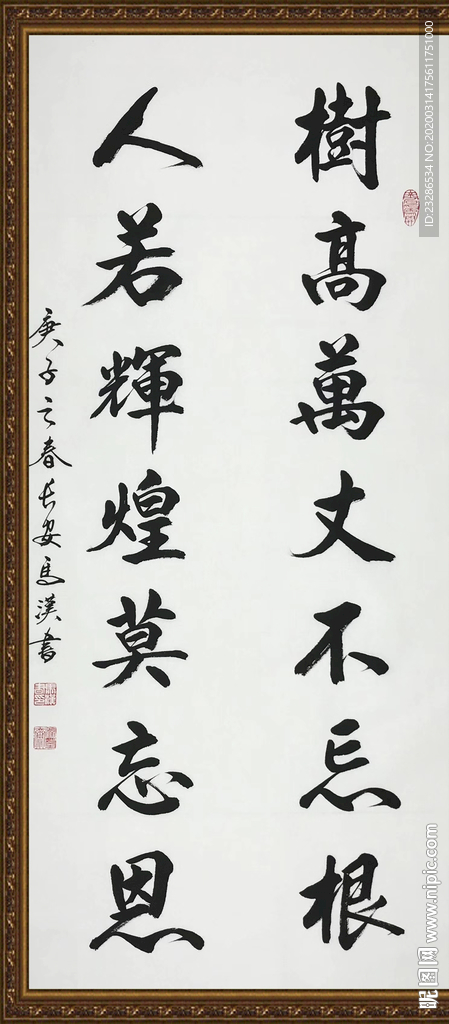 樹高萬丈不忘根
人若輝煌莫忘恩
庚子之春长安馬漢書
ID:23286534 NO:20200314175611751000
昵图网 www.nipic.com